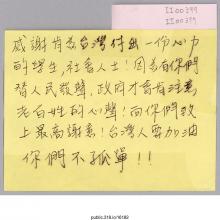 II00399
II00399
感謝肯為台灣付出一份心力
的學生,社會人士!因為有你們
替人民發聲,政府才會肯注意
老百姓的心聲!向你們致
上最高謝意!台灣人要加油
你們不孤單!!
public.318.io/16163